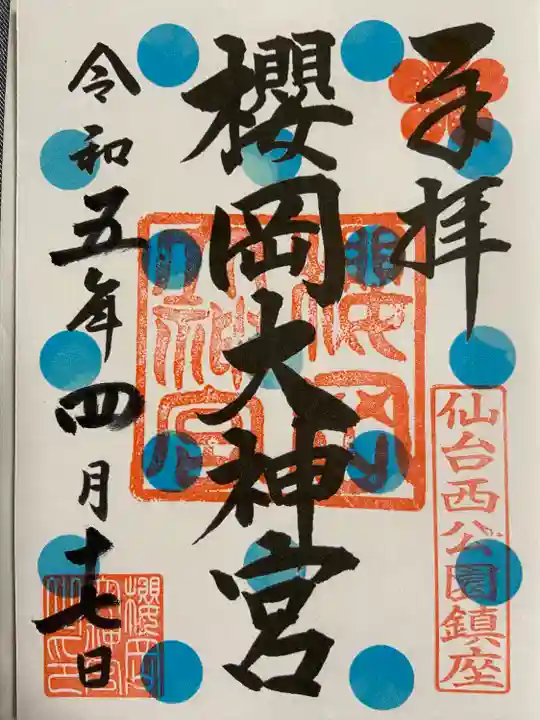 奉拝
仙台西公園鎮座
櫻岡大神宮
令和五年四月十七日